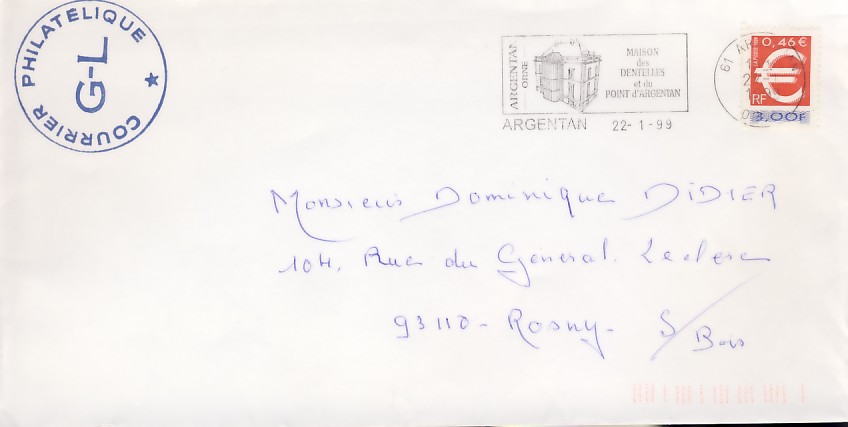 COURRIER PHILATÉLIQUE
G-L
ARGENTAN
ORNE
MAISON
des
DENTELLES
et du
POINT d'ARGENTAN
ARGENTAN 22-1-99
61
0,46€
LA POSTE
RF
3,00F
Monsieur Dominique DIDIER
104, Rue du General Leclerc
93110 - Rosny - S/Bois